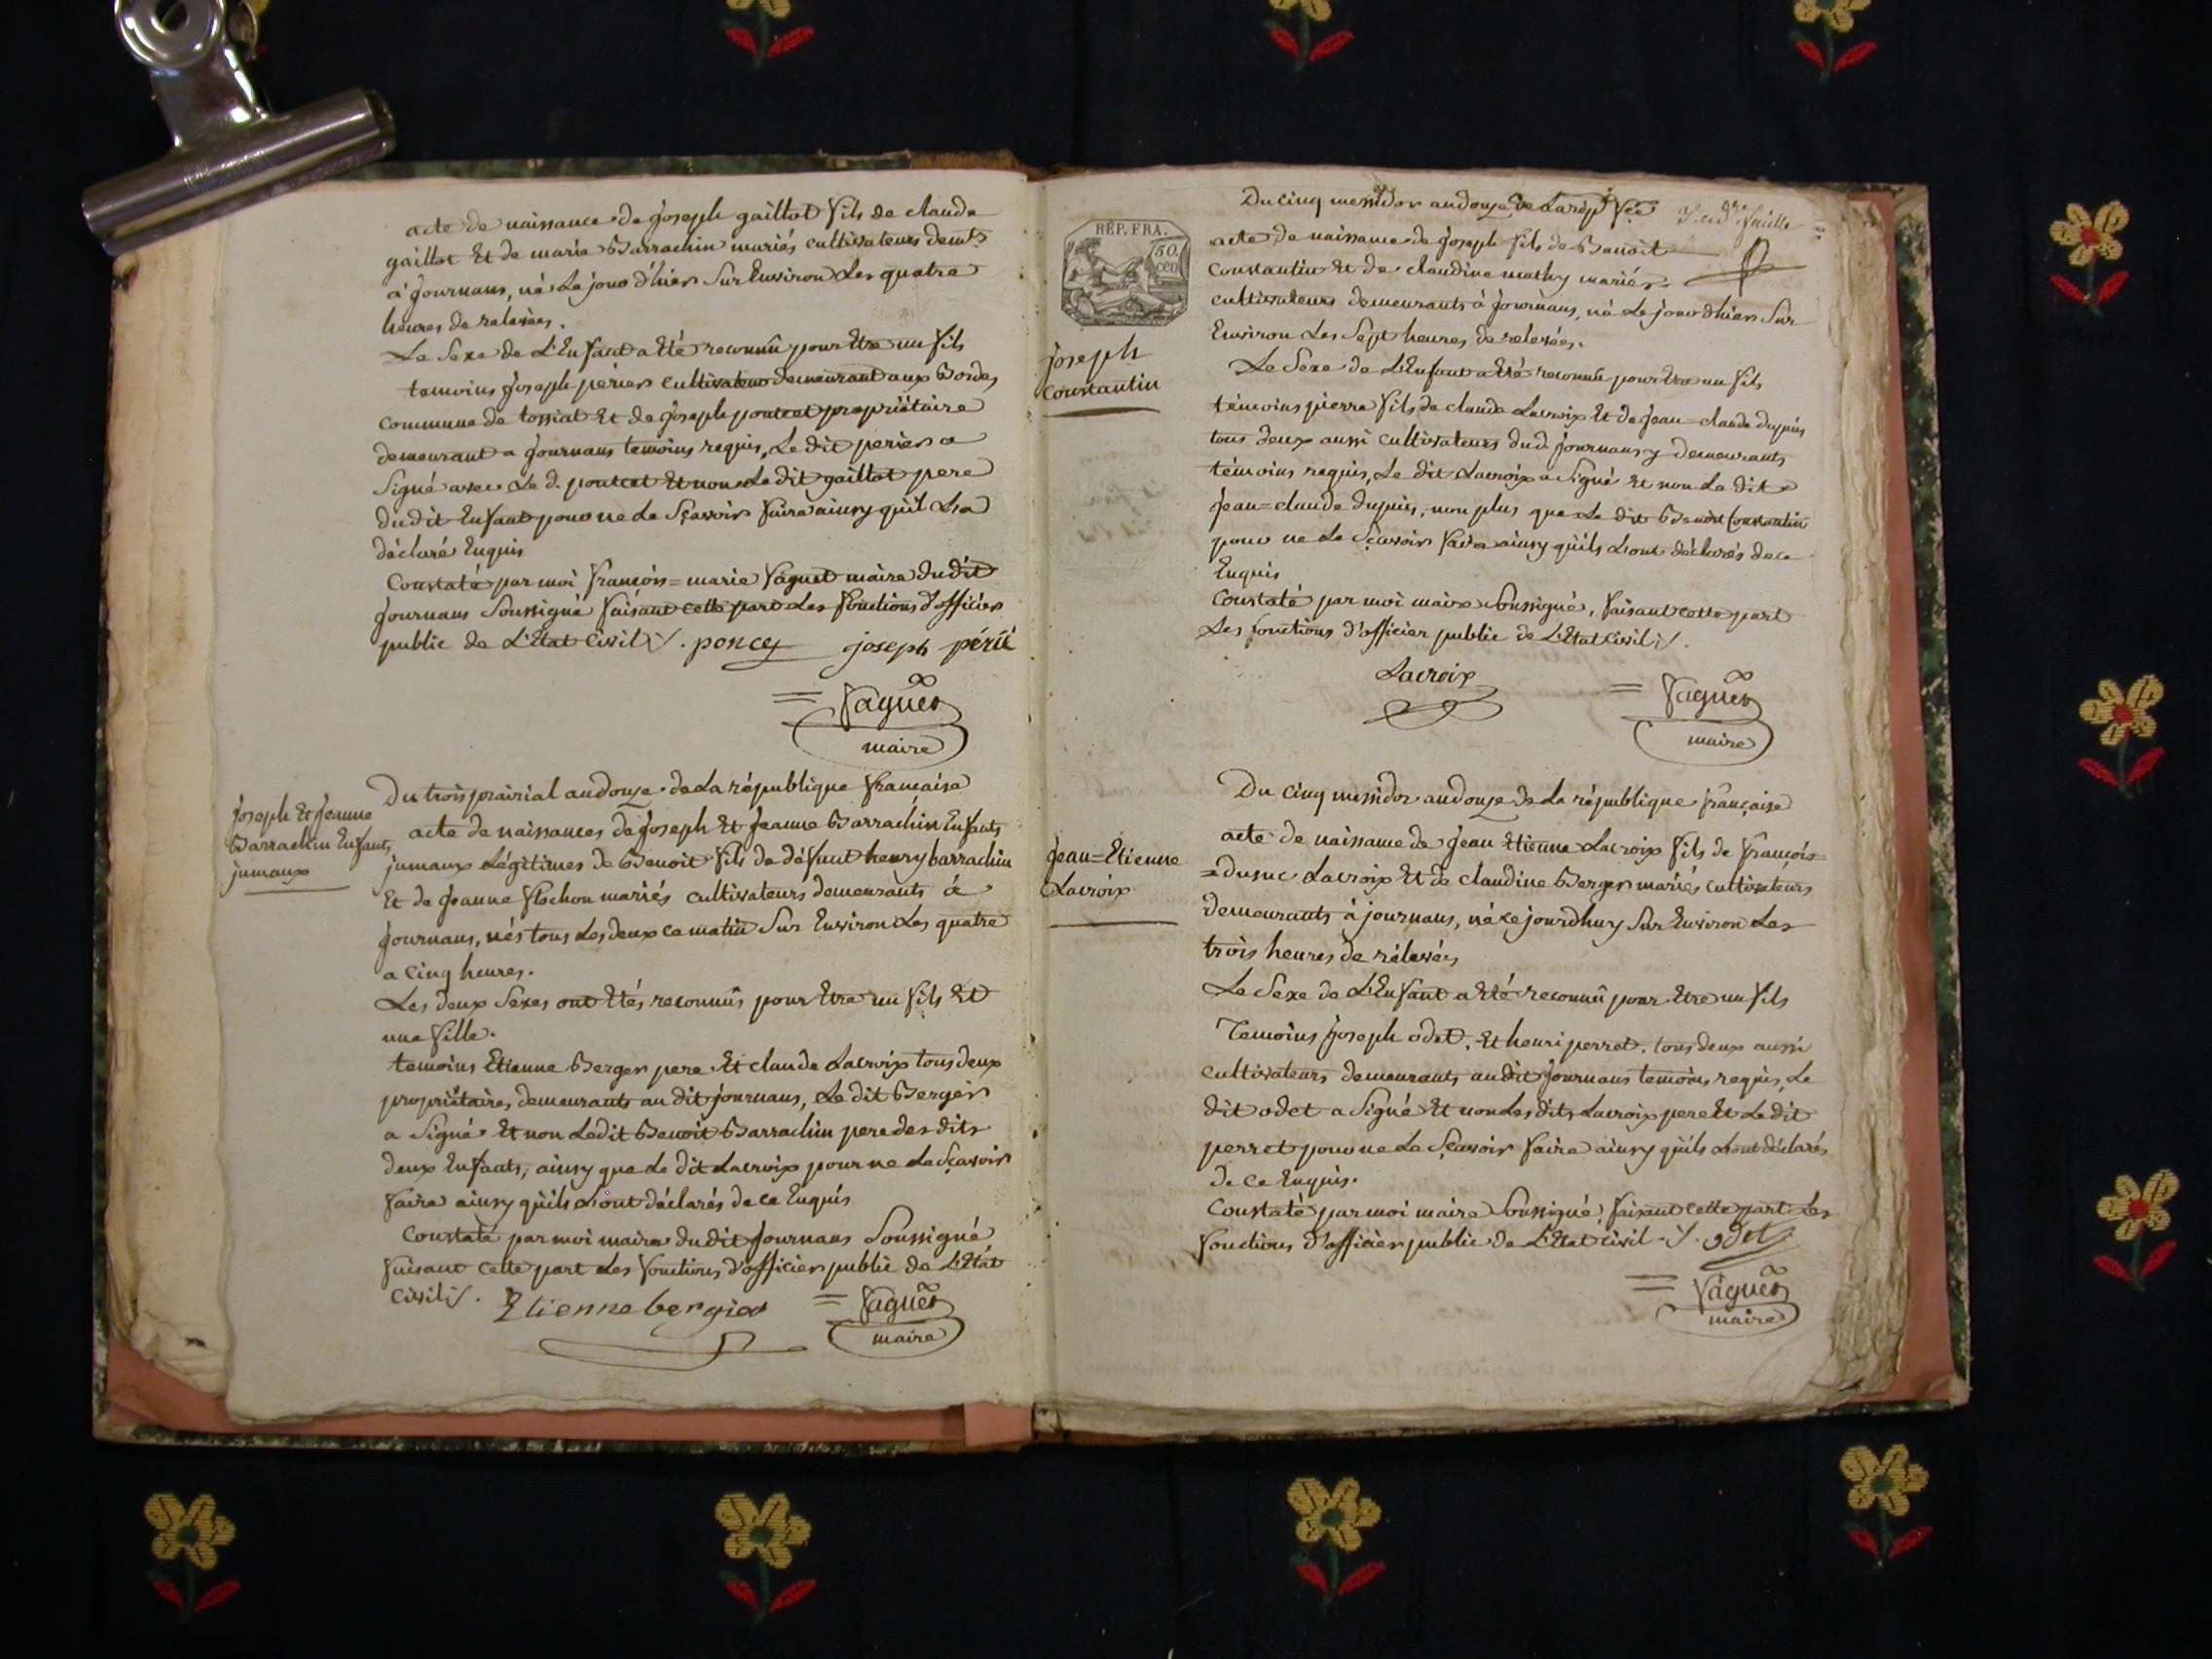 acte de naissance de joseph gaillot fils de claude
gaillot Et de marie Barrachin mariés cultivateurs demts
à journans, né Le jour d'hier Sur Environ Les quatre
heures de relevées.
Le Sexe de L'Enfant a Eté reconnû pour Etre un fils
temoins joseph périer cultivateur demeurant aux Bordes
commune de tossiat Et de joseph poncet propriétaire
demeurant a journans temoins requis, Le dit perier a
Signé avec Le d. poncet Et non Le dit gaillot pere
du dit Enfant pour ne Le Sçavoir faire ainsy qu'il L'a
déclaré Enquis
Constaté par moi françois=marie faguet maire du dit
journans Soussigné faisant cette part Les fonctions d'officier
public de L'Etat Civil ·/. poncet joseph périé
= faguet
maire
joseph Et jeanne
Barrachin Enfants
jumaux
Du trois prairial an douze de La république francaise
acte de naissances de joseph Et jeanne Barrachin Enfants
jumaux Légitimes de Benoit fils de défunt henry barrachin
Et de jeanne flochon mariés cultivateurs demeurants à
journans, nés tous Les deux ce matin Sur Environ Les quatre
a cinq heures.
Les deux Sexes ont Etés reconnûs pour Etre un fils Et
une fille.
temoins Etienne Berger pere Et claude Lacroix tous deux
propriétaires demeurants au dit journans, Le dit Berger
a Signé Et non Ledit Benoit Barrachin pere des dits
deux Enfants, ainsy que Le dit Lacroix pour ne Le Sçavoir
faire ainsy qu'ils L'ont déclarés de ce Enquis
Constaté par moi maire du dit journans Soussigné
faisant cette part Les fonctions d'officier public de L'Etat
civil ·/. Etienne bergier = faguet
maire
Du cinq messidor an douze de La rép. fce
RÉP. FRA.
50.
cen
joseph
constantin
acte de naissance de joseph fils de Benoit
constantin Et de claudine mathy mariés
cultivateurs demeurants à journans, né Le jour d'hier Sur
Environ Les Sept heures de relevées.
Le Sexe de L'Enfant a Eté reconnû pour Etre un fils
témoins pierre fils de claude Lacroix Et de jean=claude dupuis
tous deux aussi cultivateurs dud. journans y demeurants
témoins requis, Le dit Lacroix a Signé Et non Le dit
jean=claude dupuis, non plus que Le dit Benoit Constantin
pour ne Le Sçavoir faire ainsy qu'ils L'ont déclarés de ce
Enquis
Constaté par moi maire Soussigné, faisant cette part
Les fonctions d'officier public de L'Etat Civil ·/.
Lacroix = faguet
maire
jean=Etienne
Lacroix
Du cinq messidor an douze de La république française
acte de naissance de jean Etienne Lacroix fils de françois=
Lacroix Et de claudine Berger mariés cultivateurs
demeurants à journans, né cejourdhuy Sur Environ Les
trois heures de rélevées
Le Sexe de L'Enfant a Eté reconnû pour Etre un fils
Temoins joseph odet, Et henri perret, tous deux aussi
cultivateurs demeurants au dit journans temoins requis, Le
dit odet a Signé Et non Les dits Lacroix pere Et Le dit
perret pour ne Le Sçavoir faire ainsy qu'ils L'ont déclarés
de ce Enquis.
Constaté par moi maire Soussigné, faisant cette part Les
fonctions d'officier public de L'Etat civil ·/. odet
= faguet
maire